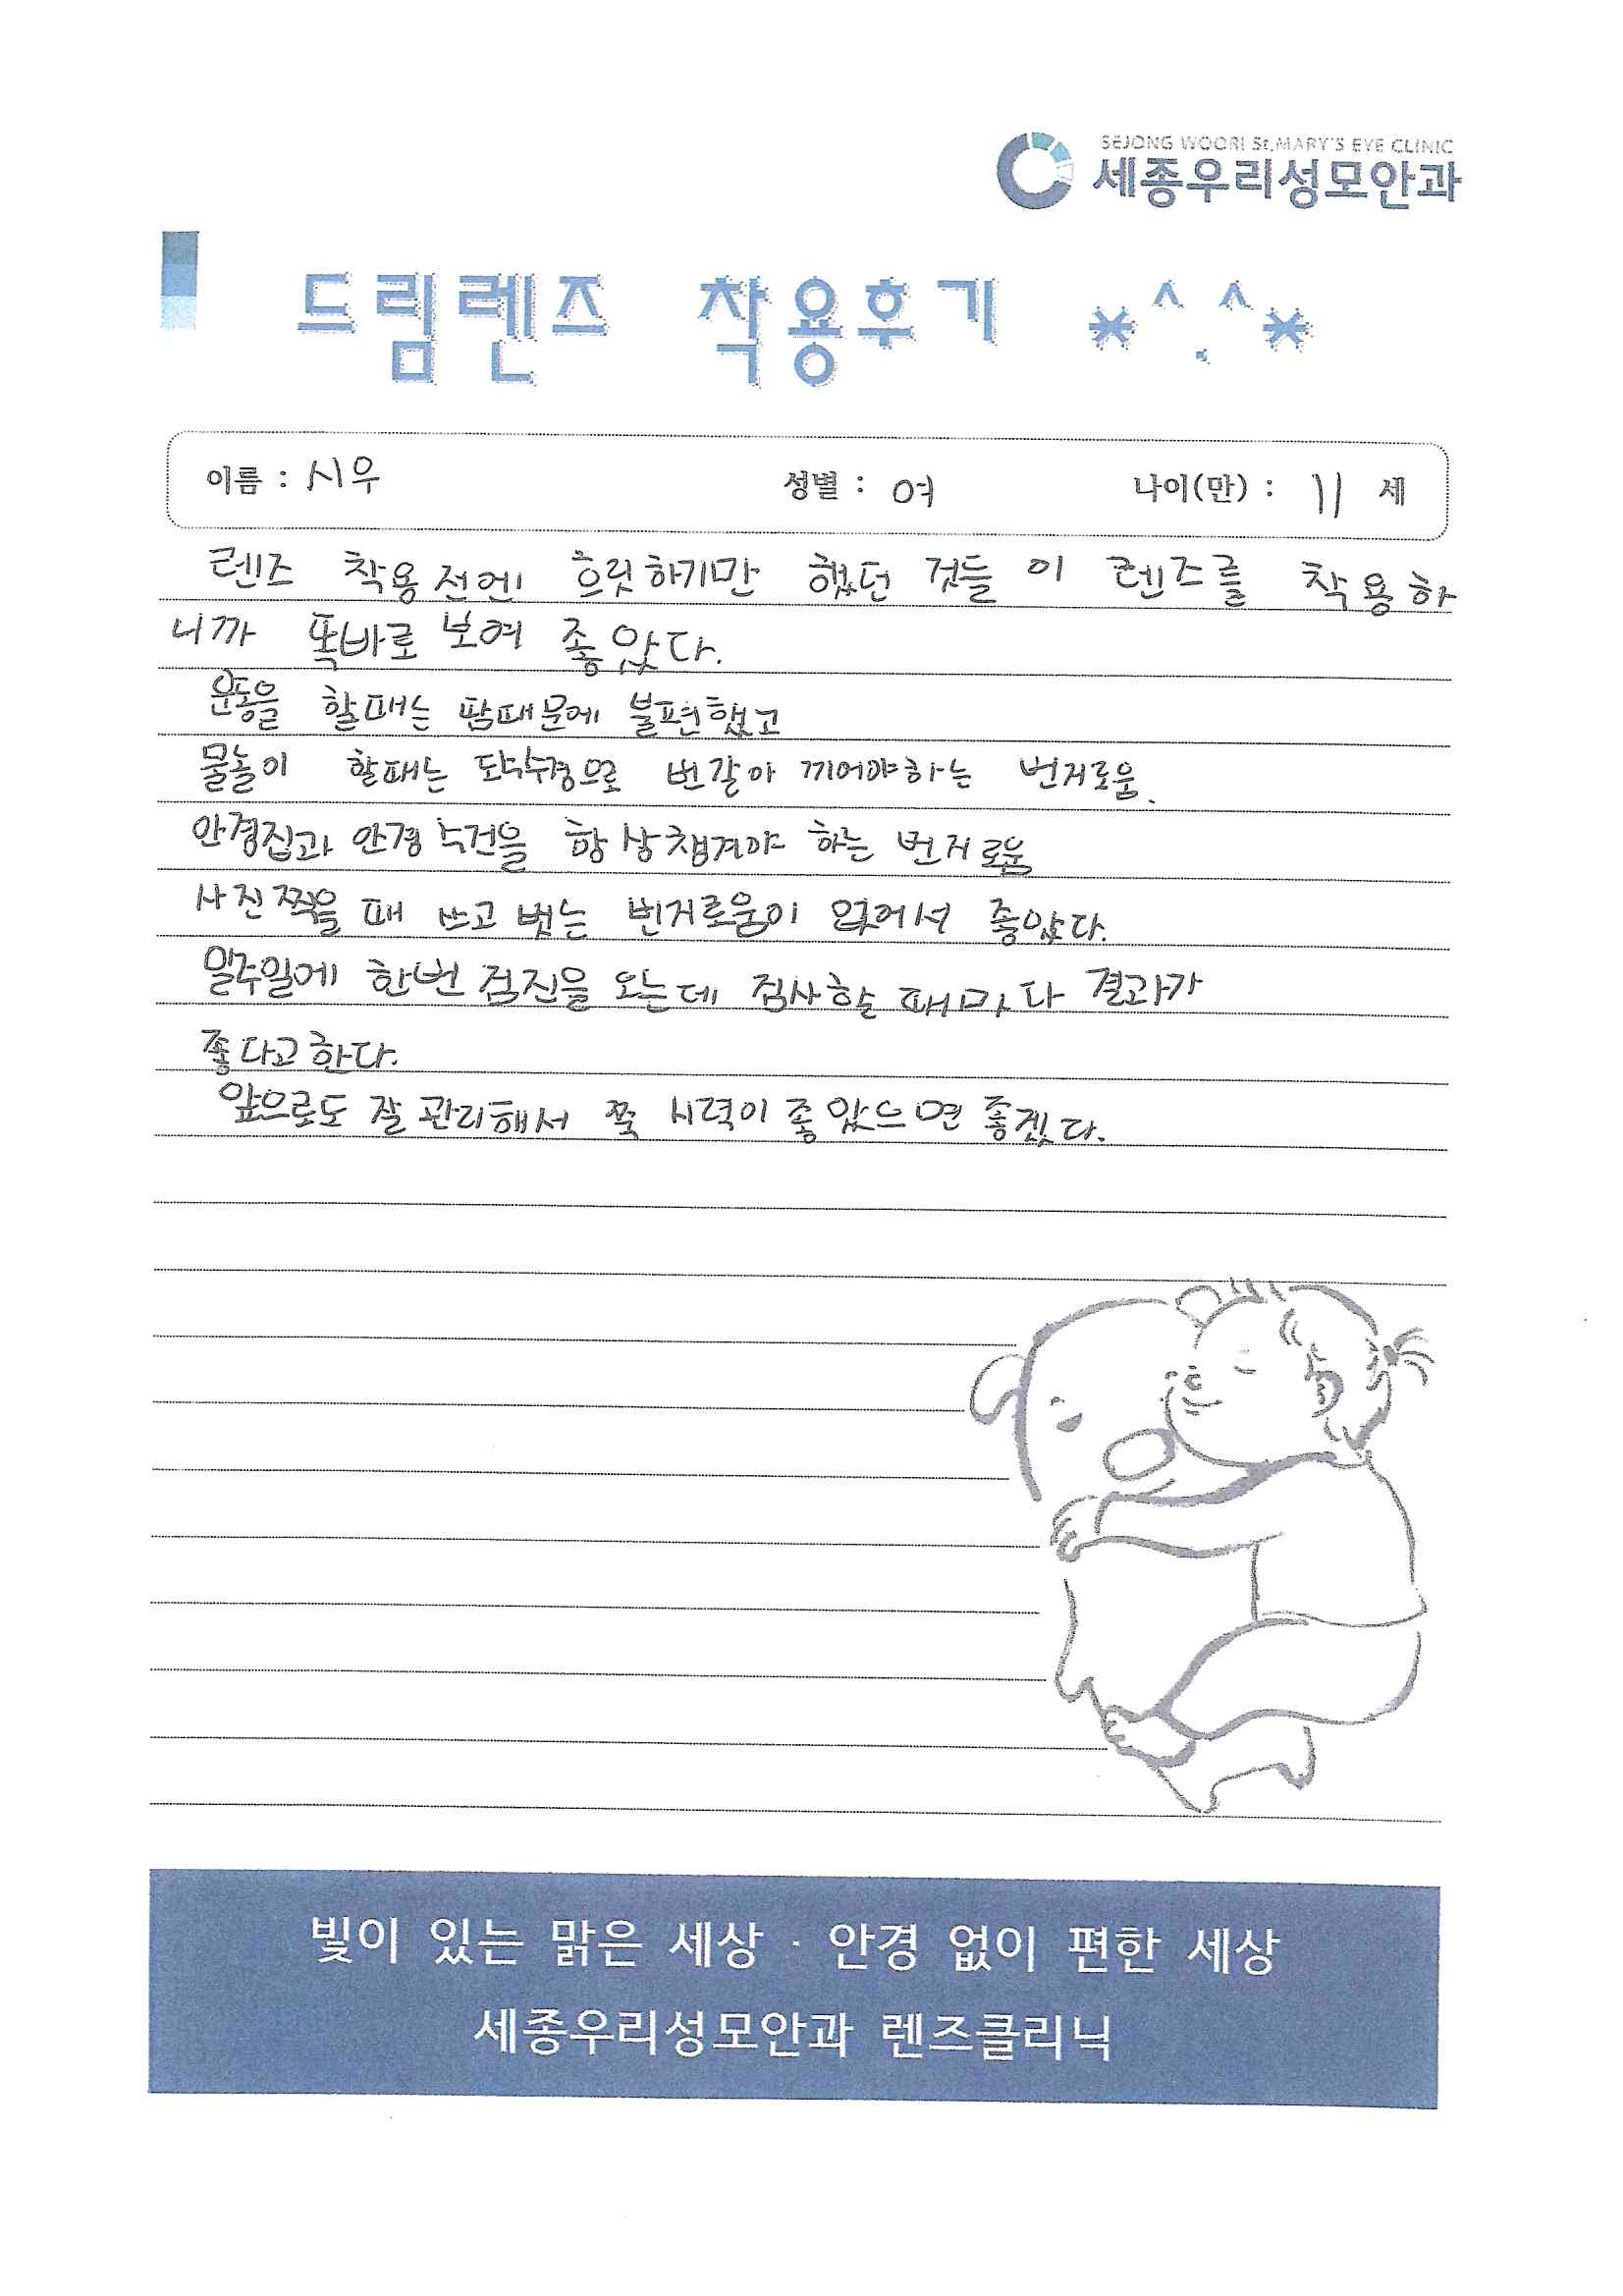 SEJONG WOORI St.MARY'S EYE CLINIC
세종우리성모안과
드림렌즈 착용후기 *^.^*
이름 : 시우 성별 : 여 나이(만) : 11 세
렌즈 착용전엔 흐릿하기만 했던 것들이 렌즈를 착용하
니까 똑바로 보여 좋았다.
운동을 할때는 땀때문에 불편했고
물놀이 할때는 도수수경으로 번갈아 끼어야하는 번거로움.
안경집과 안경수건을 항상챙겨야 하는 번거로움
사진찍을 때 쓰고 벗는 번거로움이 없어서 좋았다.
일주일에 한번 검진을 오는데 검사할 때마다 결과가
좋다고한다.
앞으로도 잘 관리해서 쭉 시력이 좋았으면 좋겠다.
빛이 있는 맑은 세상 · 안경 없이 편한 세상
세종우리성모안과 렌즈클리닉